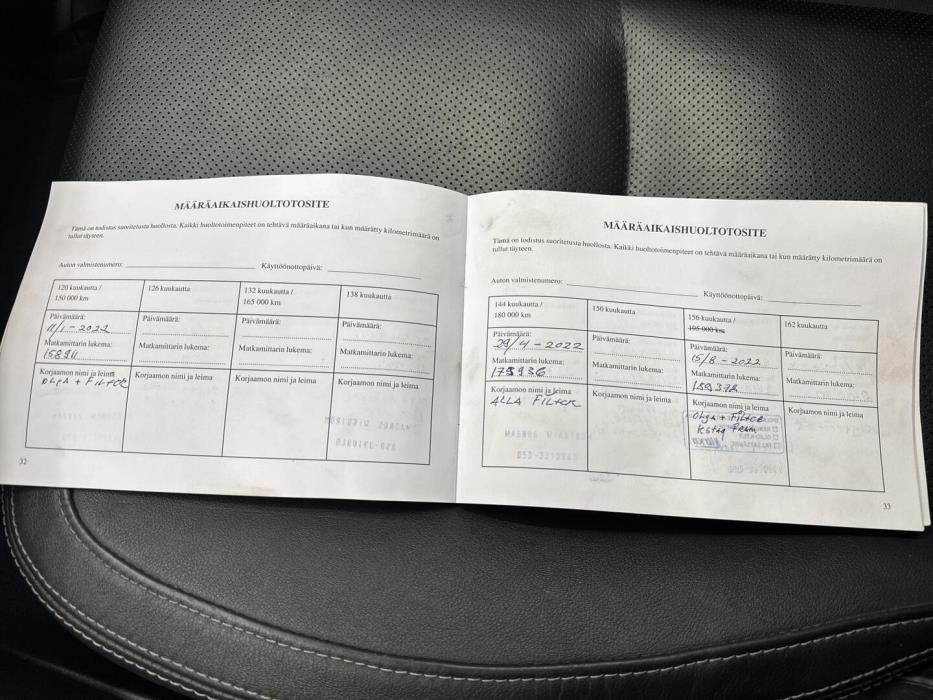 MÄÄRÄAIKAISHUOLTOTOSITE
Tämä on todistus suoritetusta huollosta. Kaikki huoltotoimenpiteet on tehtävä määräaikana tai kun määrätty kilometrimäärä on
tullut täyteen.
Auton valmistenumero: Käyttöönottopäivä:
120 kuukautta / 126 kuukautta 132 kuukautta / 138 kuukautta
150 000 km 165 000 km
Päivämäärä: Päivämäärä: Päivämäärä: Päivämäärä:
11/1-2022
Matkamittarin lukema: Matkamittarin lukema: Matkamittarin lukema: Matkamittarin lukema:
158911
Korjaamon nimi ja leima Korjaamon nimi ja leima Korjaamon nimi ja leima Korjaamon nimi ja leima
+ FILTER
32
MÄÄRÄAIKAISHUOLTOTOSITE
Tämä on todistus suoritetusta huollosta. Kaikki huoltotoimenpiteet on tehtävä määräaikana tai kun määrätty kilometrimäärä on
tullut täyteen.
Auton valmistenumero: Käyttöönottopäivä:
144 kuukautta / 150 kuukautta 156 kuukautta / 162 kuukautta
180 000 km 195 000 km
Päivämäärä: Päivämäärä: Päivämäärä: Päivämäärä:
29/4-2022 15/8-2022
Matkamittarin lukema: Matkamittarin lukema: Matkamittarin lukema: Matkamittarin lukema:
175936 189378
Korjaamon nimi ja leima Korjaamon nimi ja leima Korjaamon nimi ja leima Korjaamon nimi ja leima
ALLA FILTER + FILTER
33